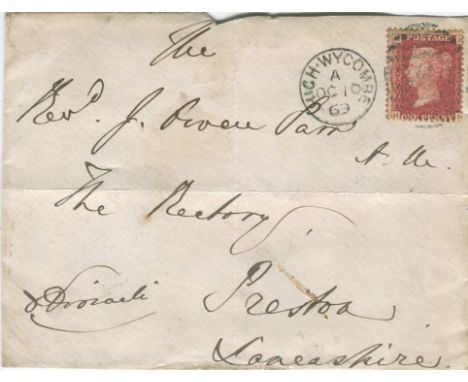 The
POSTAGE
HIGH-WYCOMBE
A
OC 10
69
Revd. J. Owen Parr
ONE PENNY
The Rectory
Disraeli
Preston
Lancashire.